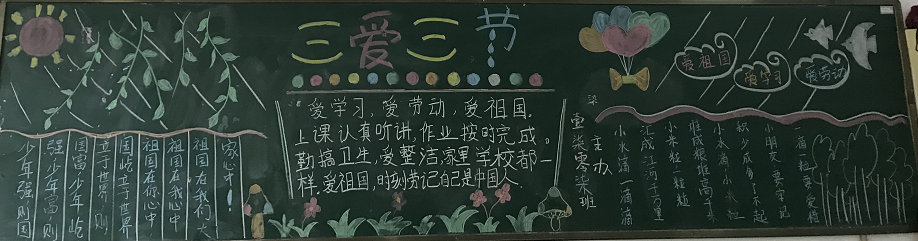 三爱三节
爱学习,爱劳动,爱祖国,
上课认真听讲,作业按时完成。
勤搞卫生,爱整洁,家里学校都一
样,爱祖国,时刻劳记自己是中国人.
爱祖国
爱学习
爱劳动
家心中!
祖国在我们大
祖国在我心中
祖国在你心中
国屹立于世界
立于世界,则
国富少年屹
强,少年富则
少年强则国
主办
小水滴一滴滴
汇成江河千万里
小米粒一粒粒
堆成粮堆高千
小水滴小米粒
积少成多了不起
小朋友要牢记
一滴一粒要爱惜